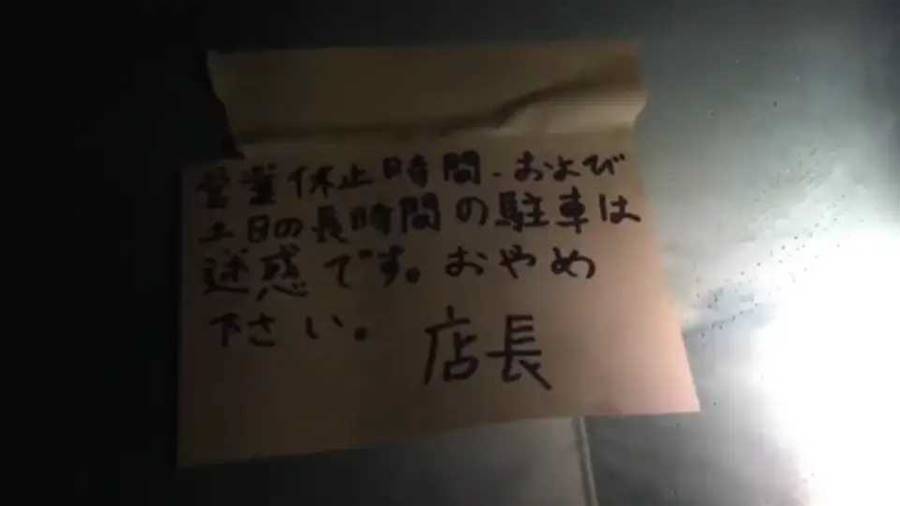 営業休止時間、および
土日の長時間の駐車は
迷惑です。おやめ
下さい。
店長